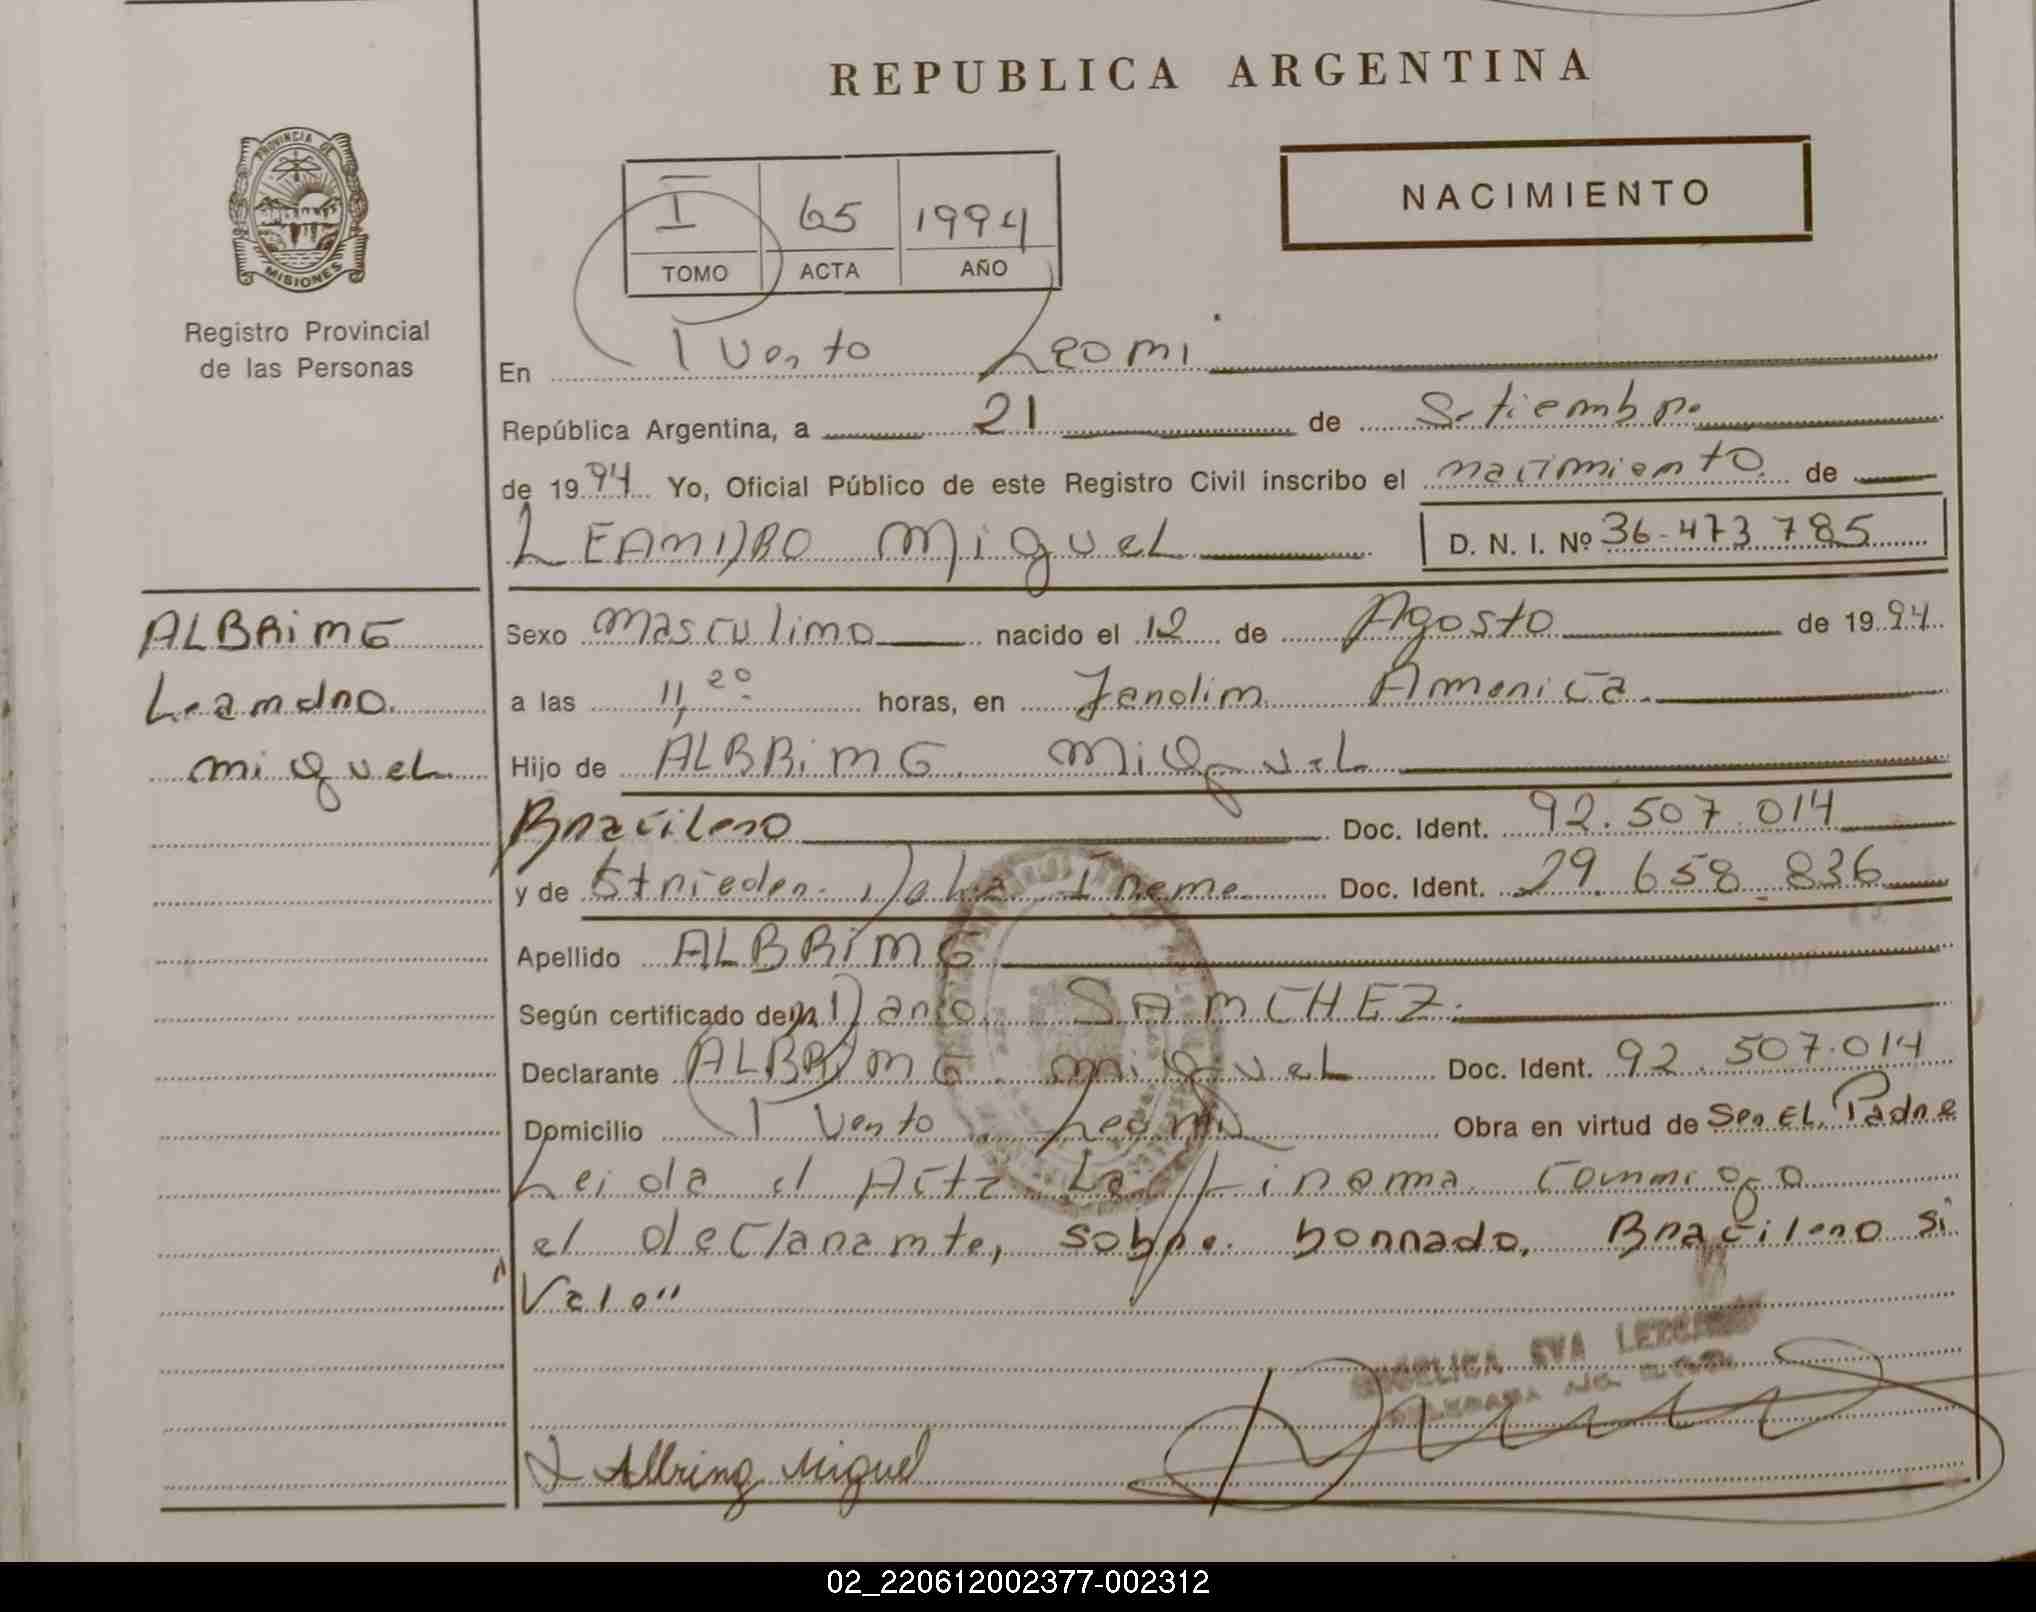 REPUBLICA ARGENTINA
PROVINCIA DE
MISIONES
Registro Provincial
de las Personas
NACIMIENTO
I 65 1994
TOMO ACTA AÑO
En Puerto Leoni
República Argentina, a 21 de Setiembre
de 1994 Yo, Oficial Público de este Registro Civil inscribo el nacimiento de
LEANDRO Miguel D. N. I. Nº 36-473 785
ALBRiNG
Leandro
miguel
Sexo masculino nacido el 12 de Agosto de 1994
a las 11,20 horas, en Jardin America
Hijo de ALBRiNG MiGuel
Brasilero Doc. Ident. 92.507.014
y de Strieder Delia Irene Doc. Ident. 29.658.836
Apellido ALBRiNG
Según certificado de Dario SANCHEZ.
Declarante ALBRiNG miguel Doc. Ident. 92.507.014
Domicilio Puerto Leoni Obra en virtud de Ser EL Padre
Leida el Acta La firma conmigo
el declarante, sobre borrado, Bracilero si
Vale"
ANGELICA EVA
Albring Miguel
02_220612002377-002312